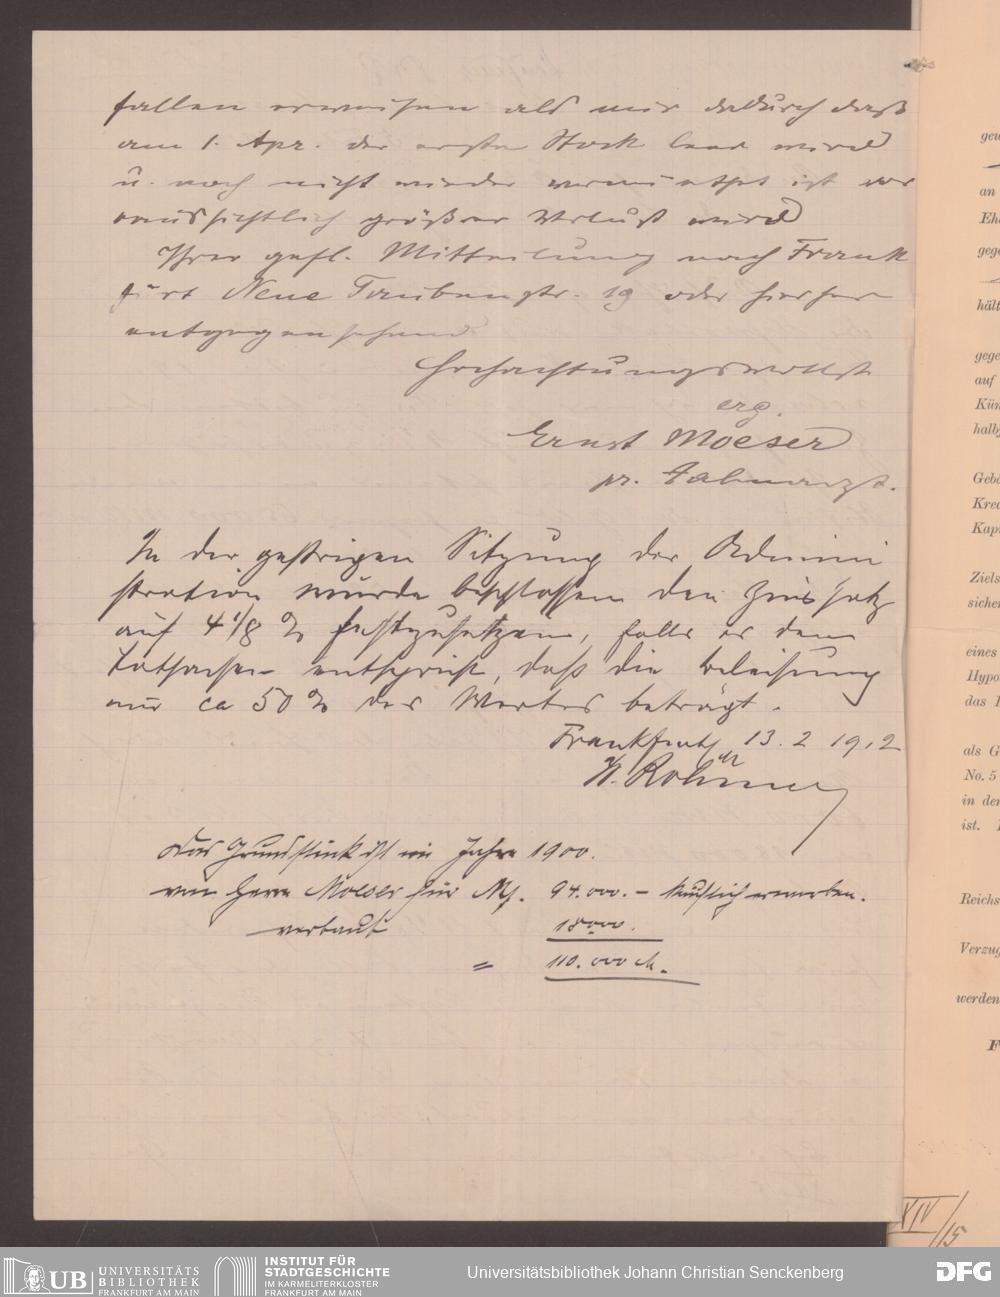 fallen erweisen als mir dadurch daß
am 1. Apr. der erste Stock leer wird
u. noch nicht wieder vermiethet ist vor
aussichtlich größrer Verlust wird
Ihrer gefl. Mitteilung nach Frank
furt Neue Taubenstr. 19 oder hierher
entgegensehend
Hochachtungsvollst
erg.
Ernst Moeser
pr. Zahnarzt.
In der gestrigen Sitzung der Admini
stration wurde beschlossen den Zinssatz
auf 4 1/8 % festzusetzen, falls es den
Tatsachen entspricht, daß die Beleihung
nur ca 50 % des Wertes beträgt.
Frankfurt, 13. 2 1912
Das Grundstück ist im Jahre 1900.
von Herrn Moeser für M. 94.000.– käuflich erworben.
verbaut 18000.
= 110.000 M.
gege
an
Ehe
gege
hält
gege
auf
Kün
halb
Gebä
Kred
Kapi
Ziels
sicher
eines
Hypo
das
als G
No. 5
in der
ist.
Reichs
Verzug
werden
F
XIV/15
UB UNIVERSITÄTS
BIBLIOTHEK
FRANKFURT AM MAIN
INSTITUT FÜR
STADTGESCHICHTE
IM KARMELITERKLOSTER
FRANKFURT AM MAIN
Universitätsbibliothek Johann Christian Senckenberg
DFG